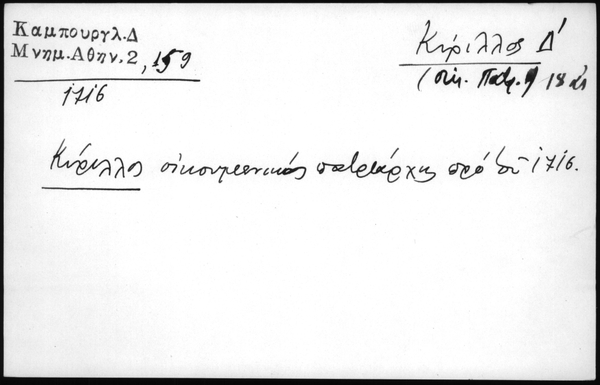 Καμπουργλ.Δ
Μνημ.Αθην.2, 159
1716
Κύριλλος Δ'
(οικ. Πατρ.) 18 αι
Κύριλλος οικουμενικός πατριάρχης πρό του 1716.